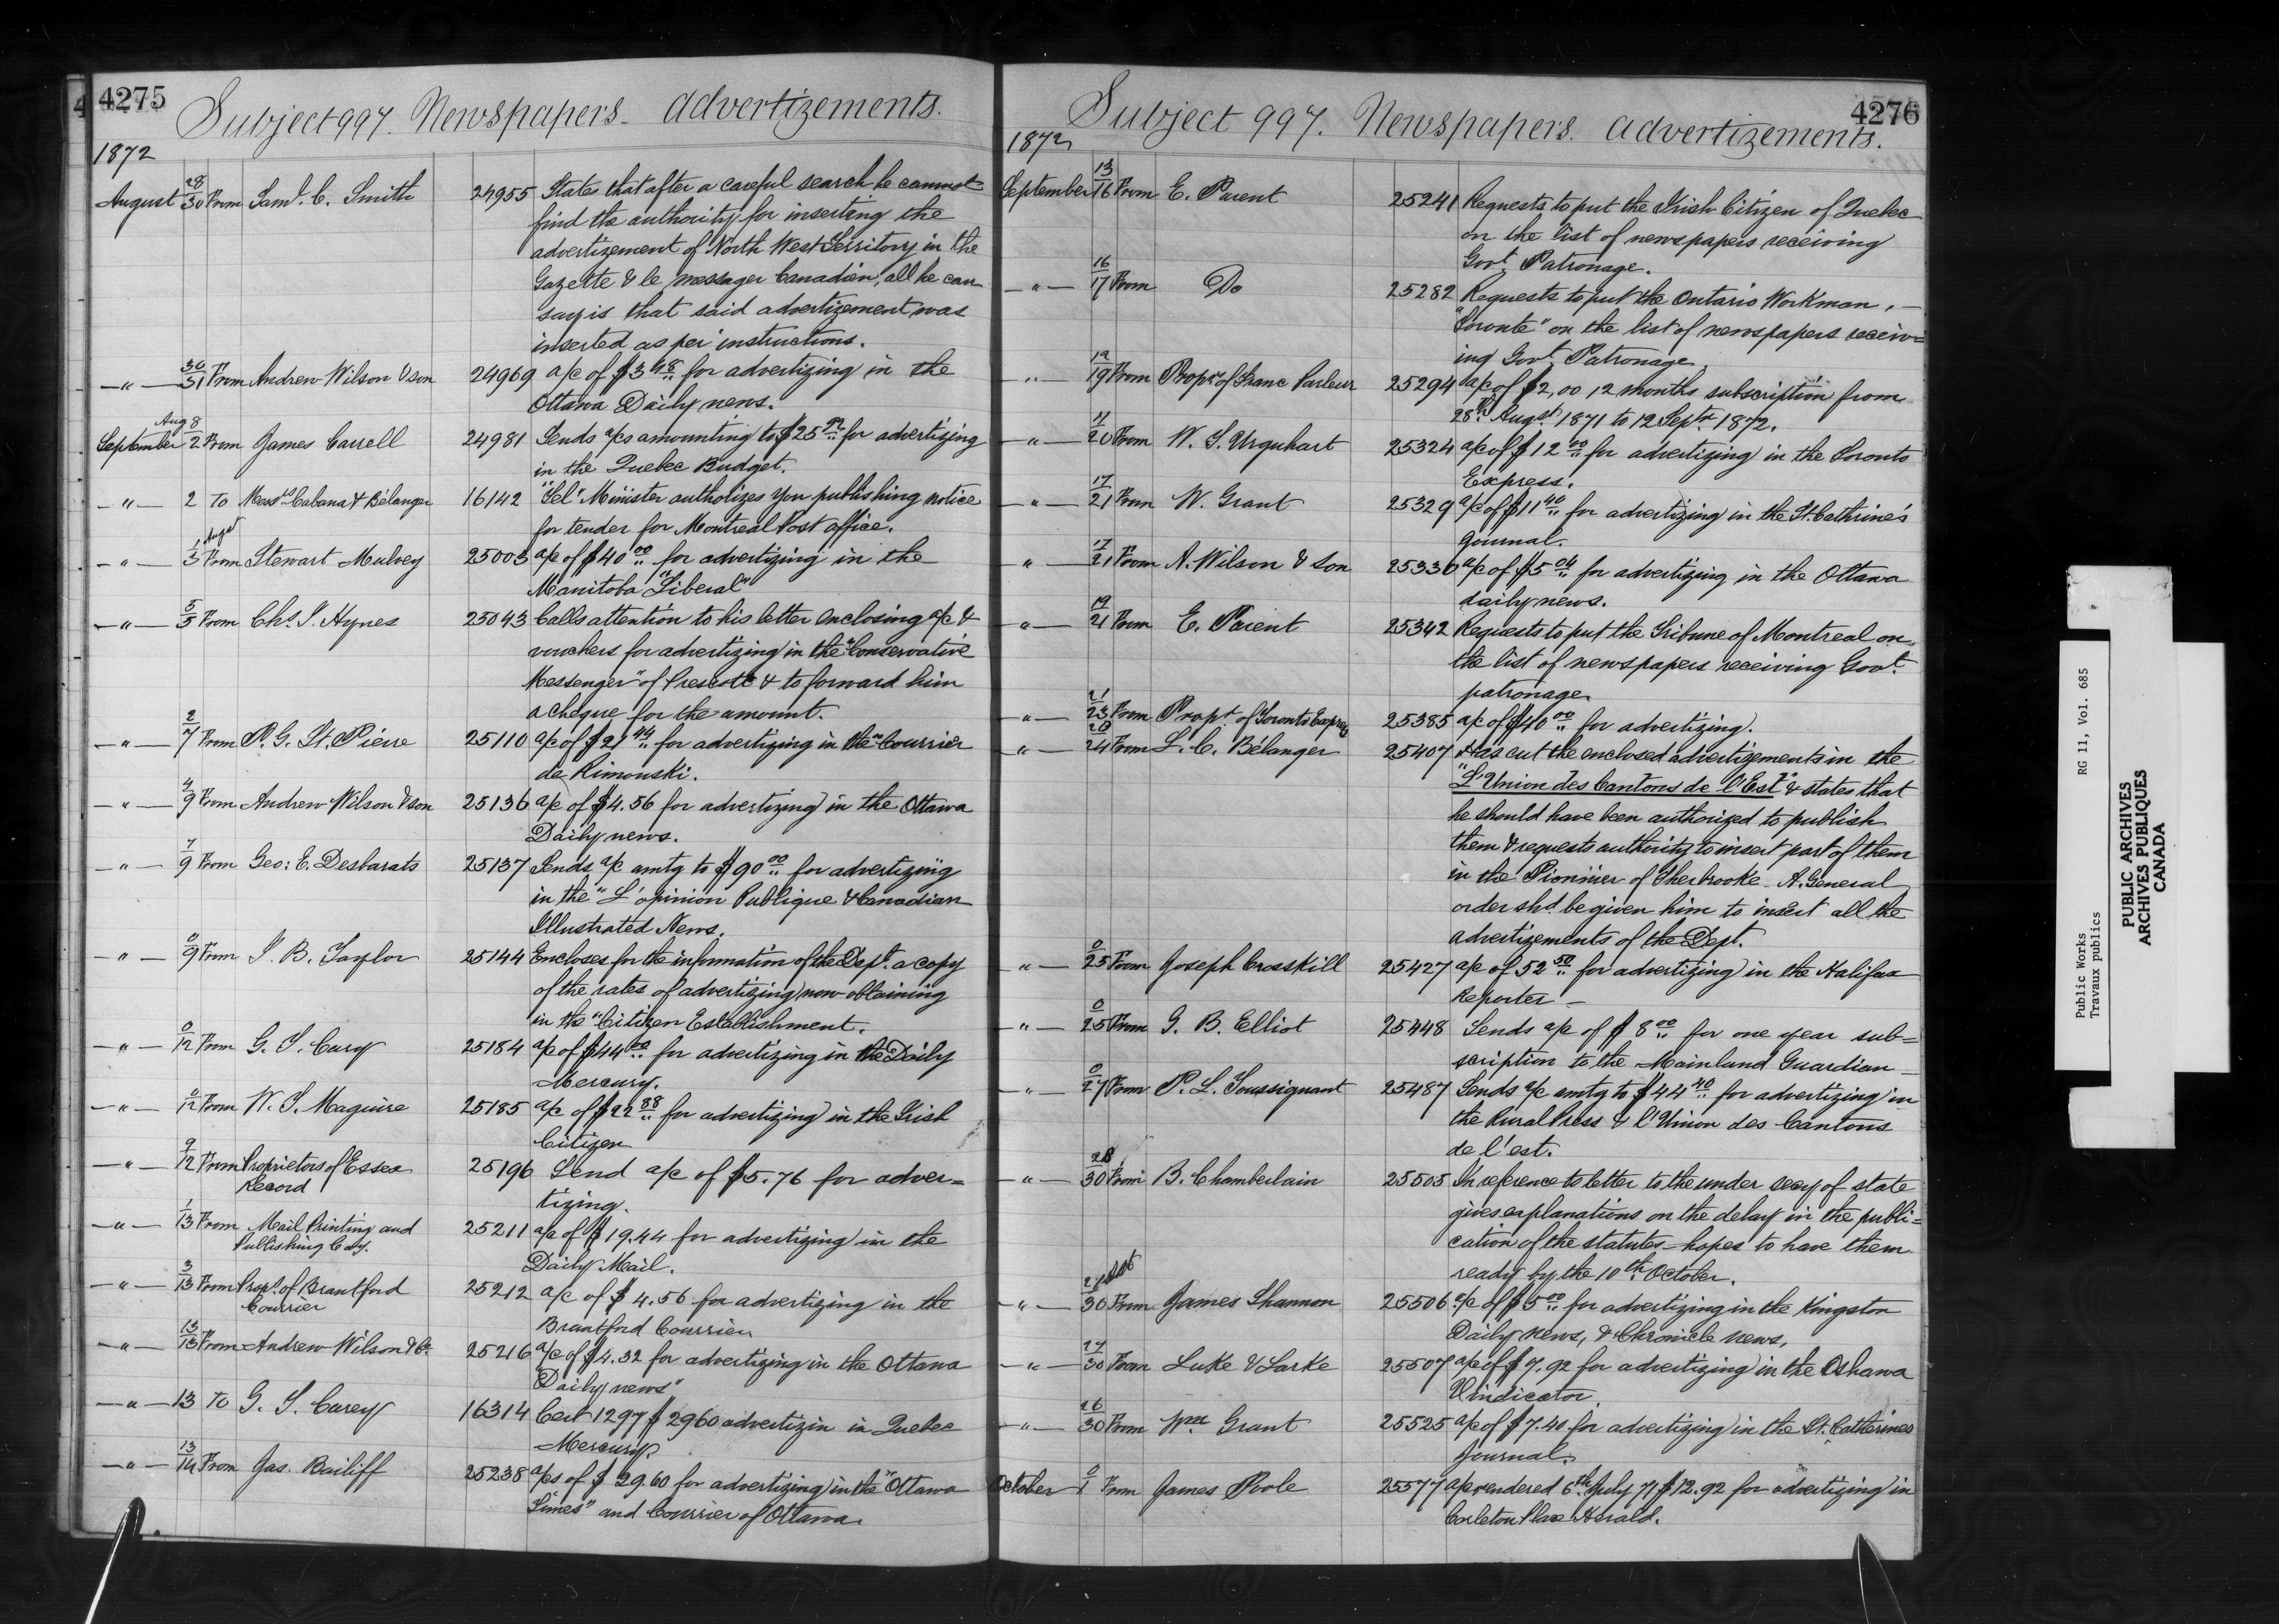 4275
Subject 997. Newspapers - Advertizements.
1872
August 28/30 From Saml. C. Smith 24955 States that after a careful search he cannot
find the authority for inserting the
advertizement of North West Territory in the
Gazette & le Messager Canadien, all he can
say is that said advertizement was
inserted as per instructions.
—"— 30/31 From Andrew Wilson & son 24969 a/c of $3 48 for advertizing in the
Ottawa Daily news.
Aug 8
September 2 From James Carrell 24981 Sends a/cs amounting to $25 92 for advertizing
in the Quebec Budget.
—"— 2 To Messrs Cabana & Bélanger 16142 "Tel" Minister authorizes you publishing notice
for tender for Montreal Post office.
Augst
—"— 1/3 From Stewart Mulvey 25003 a/c of $40 00 for advertizing in the
Manitoba "Liberal"
—"— 5/5 From Chs. J. Hynes 25043 Calls attention to his letter enclosing a/c &
vouchers for advertizing in the "Conservative
Messenger" of Prescott & to forward him
a cheque for the amount.
—"— 2/7 From P. G. St. Pierre 25110 a/c of $21 44 for advertizing in the "Courrier
de Rimouski.
—"— 4/9 From Andrew Wilson & son 25136 a/c of $4.56 for advertizing in the Ottawa
Daily news.
—"— 7/9 From Geo: E. Desbarats 25137 Sends a/c amtg to $90 00 for advertizing
in the "L'opinion Publique & Canadian
Illustrated News.
—"— 0/9 From J. B. Taylor 25144 Encloses for the information of the Dept. a copy
of the rates of advertizing now obtaining
in the "Citizen Establishment.
—"— 0/12 From G. T. Cary 25184 a/c of $44 00 for advertizing in the "Daily
Mercury.
—"— 0/12 From W. J. Maguire 25185 a/c of $22 88 for advertizing in the Irish
Citizen
—"— 9/12 From Proprietors of Essex 25196 Send a/c of $5.76 for adver=
Record
tizing.
—"— 1/13 From Mail Printing and 25211 a/c of $19.44 for advertizing in the
Publishing Coy.
Daily Mail.
—"— 3/13 From Propr. of Brantford 25212 a/c of $4.56 for advertizing in the
Courrier
Brantford Courrier
—"— 13/13 From Andrew Wilson & Co. 25216 a/c of $4.32 for advertizing in the Ottawa
Daily news"
—"— 13 To G. T. Carey 16314 Cert 1297 $2960 advertizin in Quebec
Mercury.
—"— 13/14 From Jas. Bailiff 25238 a/cs of $29.60 for advertizing in the "Ottawa
Times" and Courrier of Ottawa.
4276
Subject 997. Newspapers. Advertizements.
1872
September 13/16 From E. Parent 25241 Requests to put the Irish Citizen of Quebec
on the list of newspapers receiving
Govt. Patronage.
—"— 16/17 From Do 25282 Requests to put the Ontario Workman, —
"Toronto" on the list of newspapers receiv=
ing Govt. Patronage
—"— 19/19 From Proprs of Franc Parleur 25294 a/c of $2,00 12 months subscription from
28th Augst 1871 to 12 Septr. 1872.
—"— 11/20 From W. S. Urquhart 25324 a/c of $12 00 for advertizing in the Toronto
Express.
—"— 17/21 From W. Grant 25329 a/c of $11 40 for advertizing in the St. Cathrine's
Journal.
—"— 17/21 From A. Wilson & Son 25330 a/c of $5 04 for advertizing in the Ottawa
daily news.
—"— 19/21 From E. Parent 25342 Requests to put the Tribune of Montreal on
the list of newspapers receiving Govt.
patronage
—"— 21/23 From Propt. of Toronto Express 25385 a/c of $40 00 for advertizing.
—"— 20/24 From L. C. Bélanger 25407 Has cut the enclosed advertizements in the
"L'Union des Cantons de l'Est" & states that
he should have been authorized to publish
them & requests authority to insert part of them
in the Pionnier of Sherbrooke - A. General
order shd. be given him to insert all the
advertizements of the Dept.
—"— 0/25 From Joseph Crosskill 25427 a/c of 52 50 for advertizing in the Halifax
Reporter —
—"— 0/25 From G. B. Elliot 25448 Sends a/c of $8 00 for one year sub=
scription to the Mainland Guardian —
—"— 0/27 From P. L. Toussignant 25487 Sends a/c amtg to $44 40 for advertizing in
the Rural Press & l'Union des Cantons
de l'est.
—"— 28/30 From B. Chamberlain 25505 In reference to letter to the under secy of state
gives explanations on the delay in the publi=
cation of the statutes - hopes to have them
ready by the 10th October.
—"— 30 From James Shannon 25506 a/c of $5 00 for advertizing in the Kingston
Daily News, & Chronicle news,
—"— 27/30 From Luke & Larke 25507 a/c of $7.92 for advertizing in the Oshawa
Vindicator
—"— 26/30 From Wm. Grant 25525 a/c of $7.40 for advertizing in the St. Catherines
Journal.
October 0/1 From James Poole 25577 a/c rendered 6th July 71 $12.92 for advertizing in
Carleton Place Herald.
Public Works RG 11, Vol. 685
Travaux publics
PUBLIC ARCHIVES
ARCHIVES PUBLIQUES
CANADA